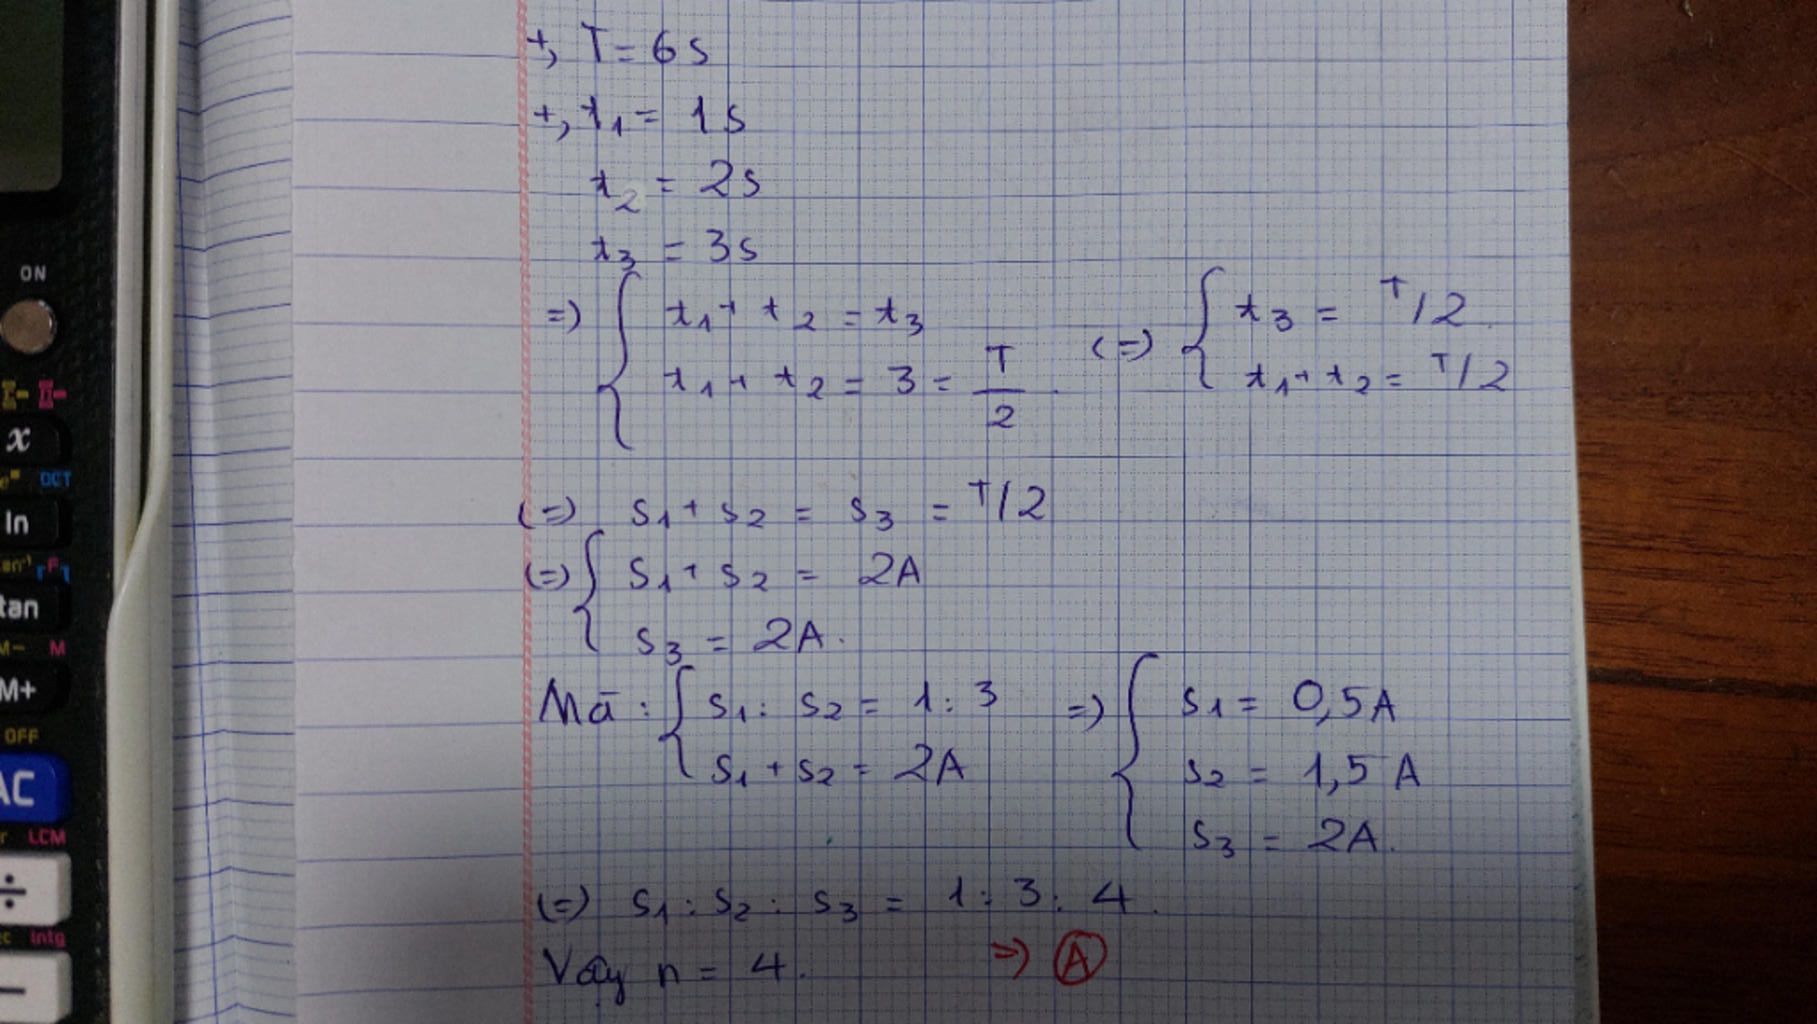 ON
x
OCT
ln
tan
M- M
M+
OFF
AC
LCM
÷
Intg
−
+, T = 6s
+, t1 = 1s
t2 = 2s
t3 = 3s
=) { t1 + t2 = t3
t1 + t2 = 3 = T/2
(=) { t3 = T/2
t1 + t2 = T/2
(=) s1 + s2 = s3 = T/2
(=) { s1 + s2 = 2A
s3 = 2A.
Mā : { s1 : s2 = 1 : 3
s1 + s2 = 2A
=) { s1 = 0,5A
s2 = 1,5A
s3 = 2A.
(=) s1 : s2 : s3 = 1 : 3 : 4.
Vậy n = 4. =) A